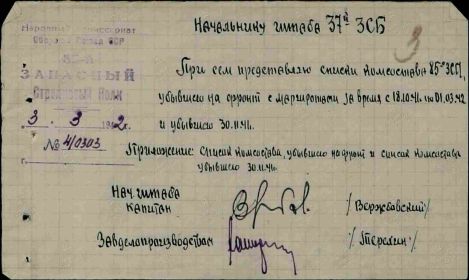 Народный Комиссариат
Обороны Союза ССР
85-й
ЗАПАСНЫЙ
Стрелковый Полк
3. 3 1942г.
№ 4/0303
3
Начальнику штаба 37й ЗСБ
При сем представляю списки комсостава 85го ЗСП,
убывшего на фронт с маршротами за время с 18.10.41. по 01.03.42
и убывшего 30.11.41.
Приложение: Список комсостава, убывшего на фронт и список комсостава
убывшего 30.11.41.
Нач штаба
капитан /Вержбавский/
Завделопроизводством /Терехин/